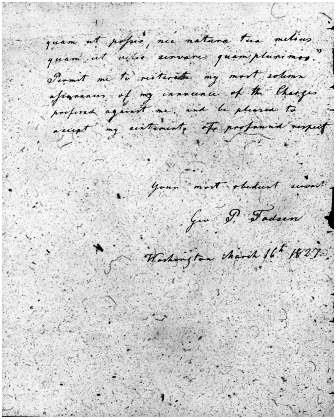 quam ut possis, nec natura tua melius
quam ut velis servare quam plurimos."
Permit me to reiterate my most solemn
assurances of my innocence of the Charges
prefered against me, and be pleased to
accept my sentiments of profound respect
Your most obedient servant
Geo. P.
Washington March 16th 1827.